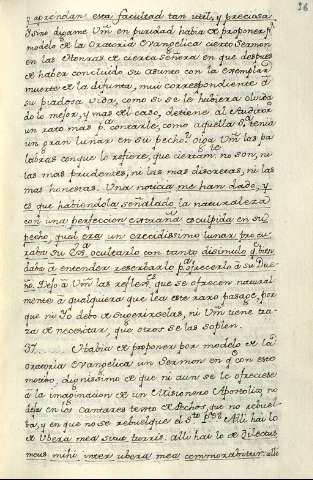 26
o aprendan esta facultad tan util, y preciosa.
Y sino digame Vm en puridad habia de proponer pr.
modelo de la Oratoria Evangelica cierto Sermon
en las Honras de cierta Señora en que despues
de haber concluido su asunto con la exemplar
muerte de la difunta, mui correspondiente á
su piadosa vida, como si se le hubiera olvida
do lo mejor, y mas del caso, detiene al Auditorio
un rato mas pa. contarle, como aquella Sra. tenia
un gran lunar en su pecho. oiga Vm las pa
labras con que lo refiere, que ciertamte. no son, ni
las mas prudentes, ni las mas discretas, ni las
mas honestas. Una noticia me han dado, y
es que habiendola señalado la naturaleza
con una perfeccion extraña esculpida en su
pecho, qual era un crecidissimo lunar procu
raba su Exa. ocultarlo con tanto disimulo q. bien
daba á entender reservarlo pa. ofrecerlo á su Due
ño. Dejo á Vm las reflexs. que se ofrecen natural
mente á qualquiera que lea este raro pasage, por
que ni Yo debo de sugerirselas, ni Vm tiene tra
za de necesitar, que otros se las soplen.
37. Habia de proponer por modelo de la
oratoria Evangelica un Sermon en q. con este
motivo, dignissimo de que ni aun se le ofreciese
á la imaginacion de un Misionero Apostolico, no
deja en los Cantares texto de Pechos, que no rebuel
ba, y en que no se rebuelque el Sto. Pe. Alli hai lo
de Ubera mea sicut turris. alli hai lo de Dilectus
meus mihi inter ubera mea commorabitur. alli